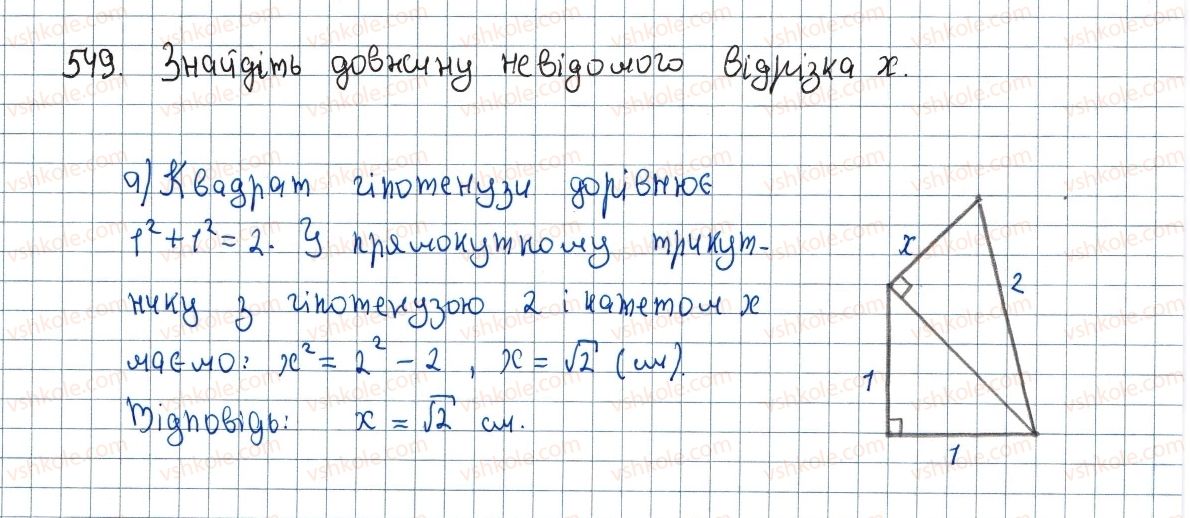 549. Знайдіть довжину невідомого відрізка x.
а) Квадрат гіпотенузи дорівнює
1² + 1² = 2. У прямокутному трикут-
нику з гіпотенузою 2 і катетом x
маємо: x² = 2² - 2, x = √2 (см).
Відповідь: x = √2 см.
x
2
1
1
vshkole.com